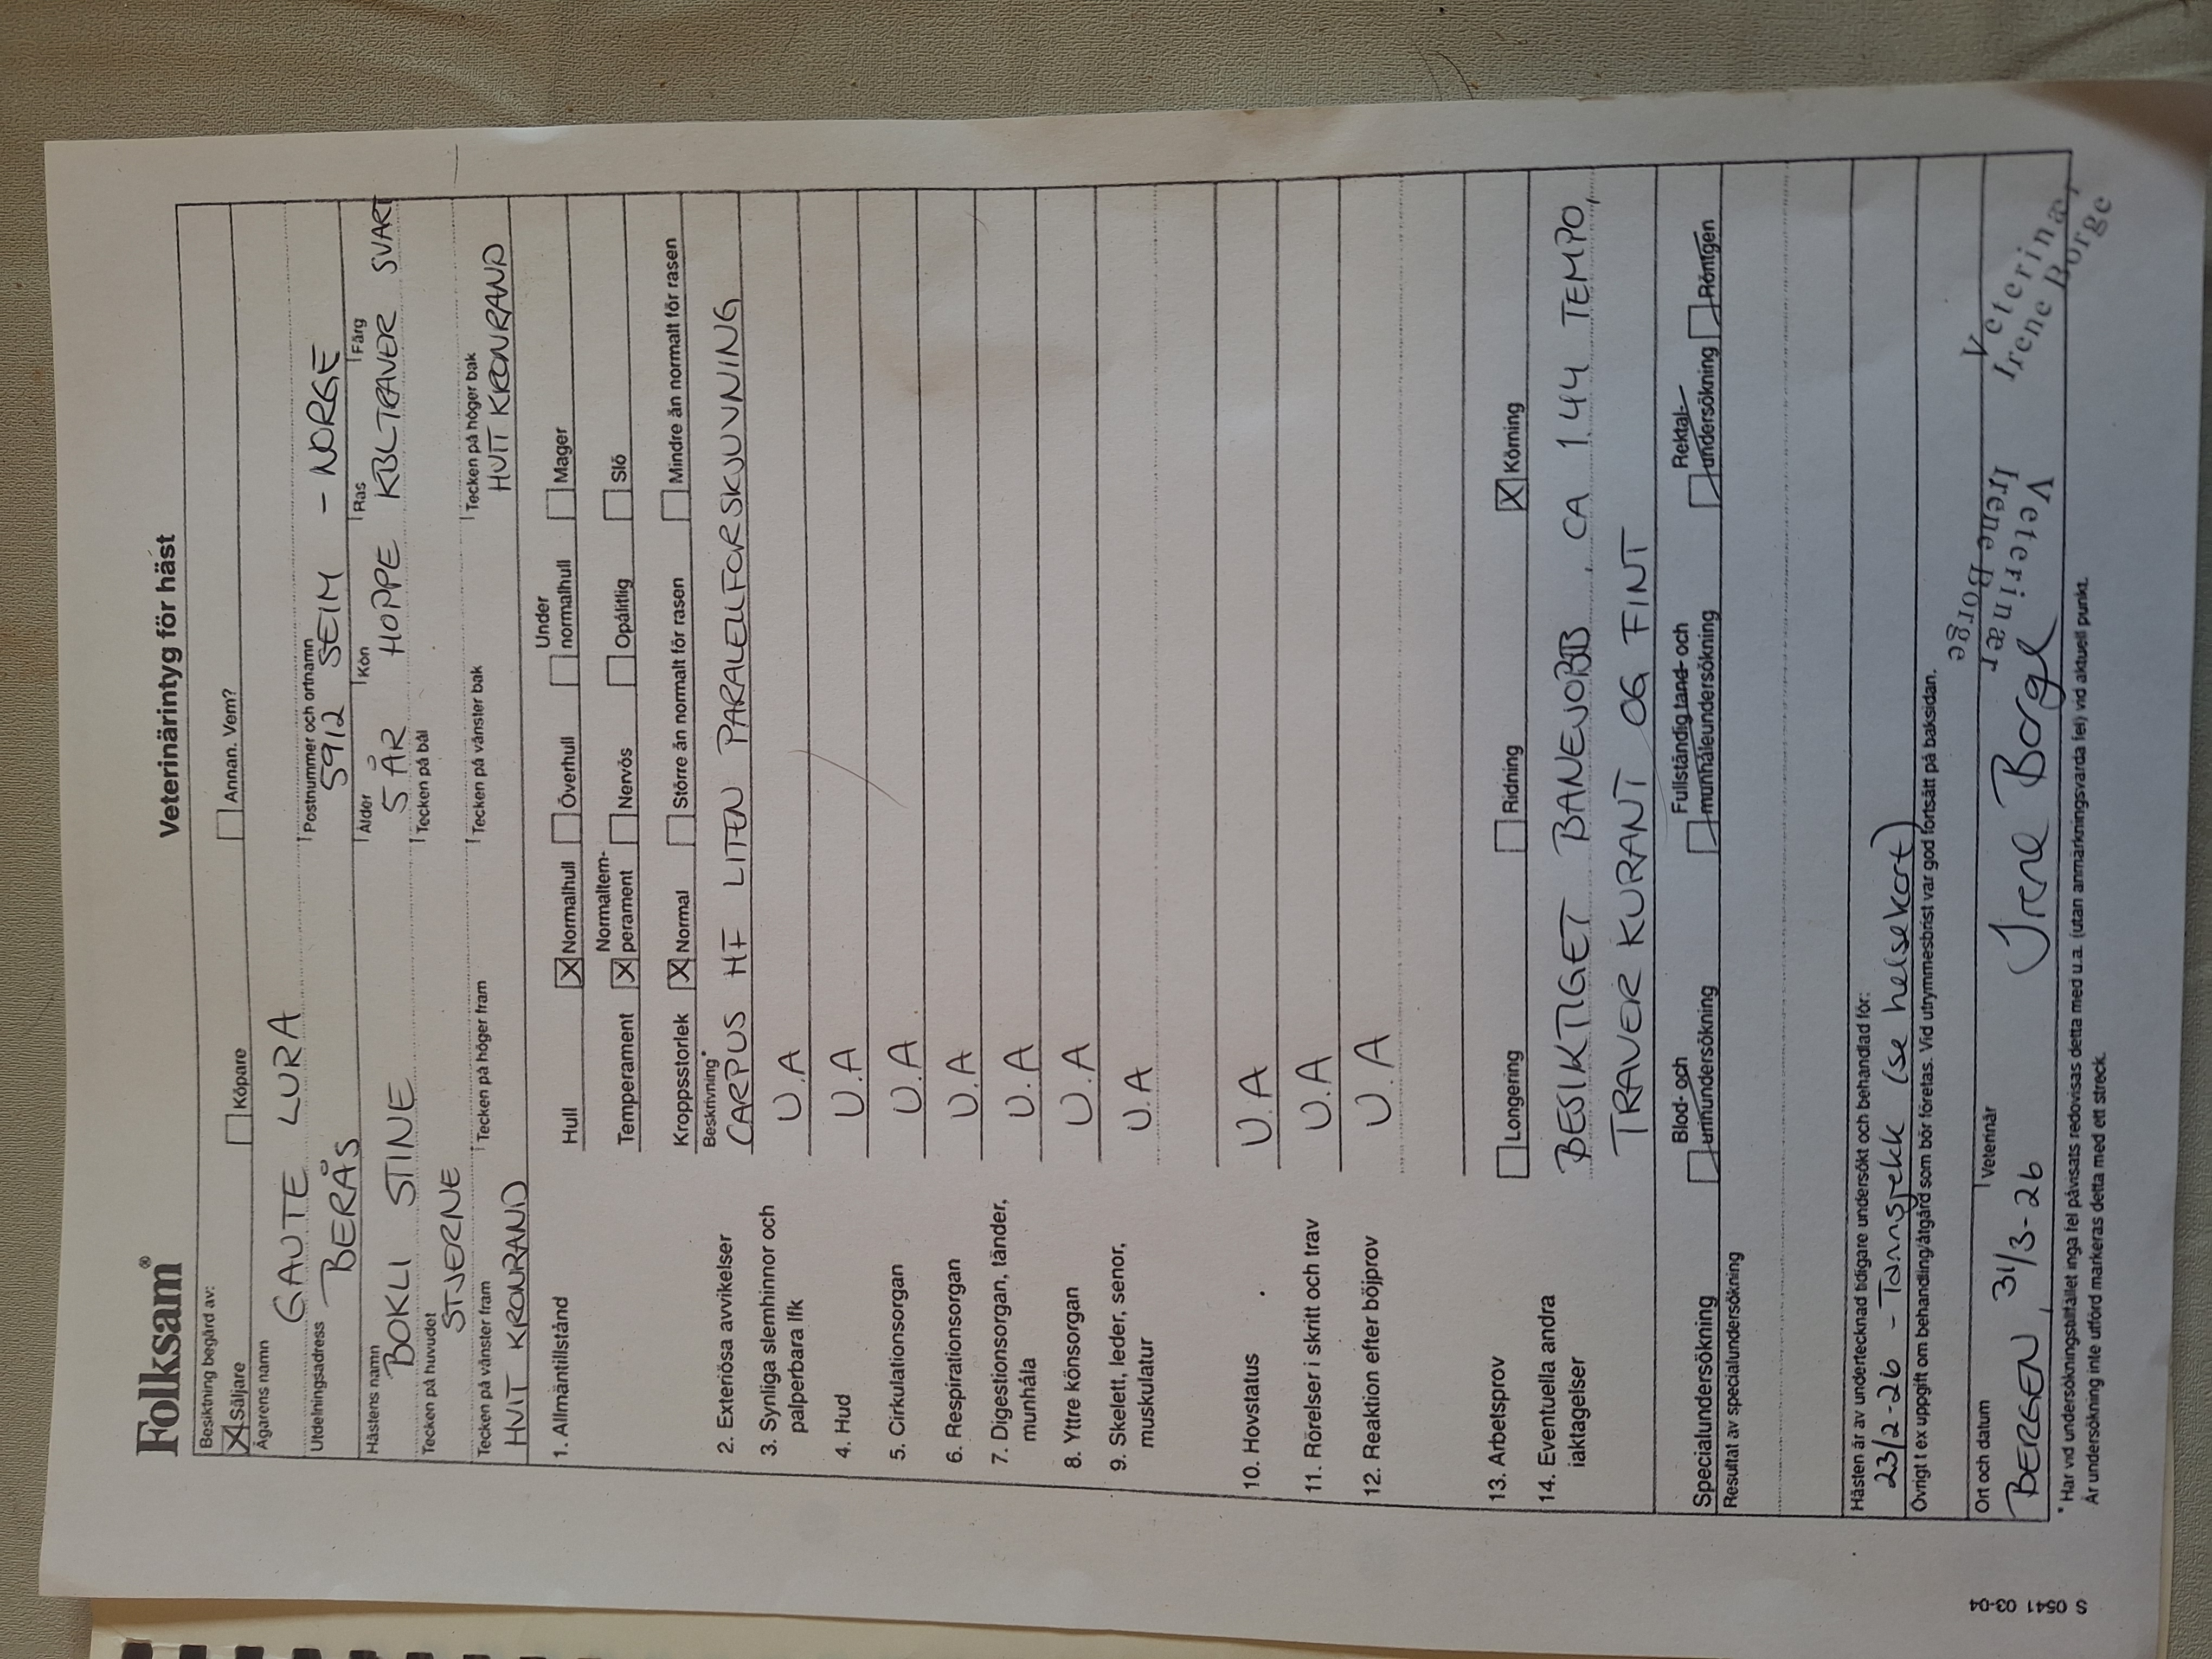 Folksam®
Veterinärintyg för häst
Besiktning begärd av:
X Säljare Köpare Annan. Vem?
Ägarens namn
GAUTE LURA
Utdelningsadress Postnummer och ortnamn
BERÅS 5912 SEIM - NORGE
Hästens namn Ålder Kön Ras Färg
BOKLI STINE 5 ÅR HOPPE KBLTRAVER SVART
Tecken på huvudet Tecken på bål
STJERNE
Tecken på vänster fram Tecken på höger fram Tecken på vänster bak Tecken på höger bak
HVIT KRONRAND HVIT KRONRAND
1. Allmäntillstånd Hull X Normalhull Överhull Under normalhull Mager
Temperament X Normaltem-perament Nervös Opålitlig Slö
Kroppsstorlek X Normal Större än normalt för rasen Mindre än normalt för rasen
Beskrivning*
2. Exteriösa avvikelser CARPUS HF LITEN PARALELLFORSKJUVNING
3. Synliga slemhinnor och U.A
palperbara lfk
4. Hud U.A
5. Cirkulationsorgan U.A
6. Respirationsorgan U.A
7. Digestionsorgan, tänder, U.A
munhåla
8. Yttre könsorgan U.A
9. Skelett, leder, senor, U.A
muskulatur
10. Hovstatus U.A
11. Rörelser i skritt och trav U.A
12. Reaktion efter böjprov U.A
13. Arbetsprov Longering Ridning X Körning
14. Eventuella andra BESIKTIGET BANEJOBB, CA 1.44 TEMPO,
iaktagelser TRAVER KURANT OG FINT
Specialundersökning Blod- och urinundersökning Fullständig tand- och munhåleundersökning Rektal-undersökning Röntgen
Resultat av specialundersökning
Hästen är av undertecknad tidigare undersökt och behandlad för:
23/2-26 - Tannsjekk (se helsekort)
Övrigt t ex uppgift om behandling/åtgärd som bör företas. Vid utrymmesbrist var god fortsätt på baksidan.
Ort och datum Veterinär
BERGEN, 31/3-26 Irene Borge
Veterinær
Irene Borge
Veterinær
Irene Borge
* Har vid undersökningstillfället inga fel påvisats redovisas detta med u.a. (utan anmärkningsvärda fel) vid aktuell punkt.
Är undersökning inte utförd markeras detta med ett streck.
S 0541 03-04